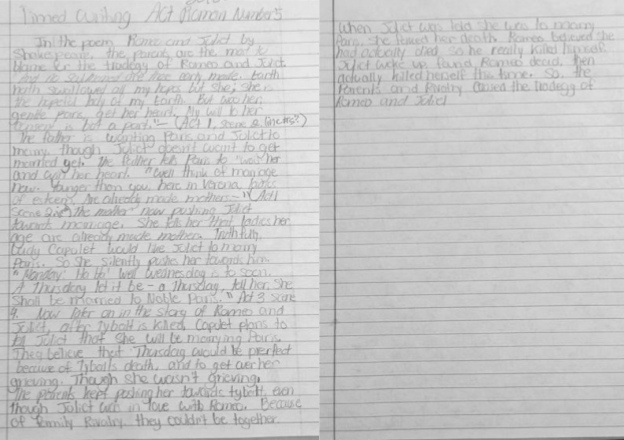 Timed Writing Act Roman Numbers
In the poem, Romeo and Juliet by
Shakespeare, the parents are the most to
blame for the tradegy of Romeo and Juliet.
And too soon marred are those early made. Earth
hath swallowed all my hopes but she; she is
the hopeful lady of my earth. But woo her,
gentle paris, get her heart. My will to her
consent is but a part." (Act 1, scene 2,
The father is wanting Paris and Juliet to
marry, though Juliet doesn't want to get
married yet. The father tells Paris to "woo" her
and get her heart. "Well think of marriage
now. Younger than you, here in Verona, ladies
of esteem, Are already made mothers." (Act 1
Scene the mother now pushing Juliet
towards marriage. She tells her that ladies her
age are already made mothers. Truthfully,
Lady Capulet would like Juliet to marry
Paris. So she silently pushes her towards him.
"Monday! Ha ha! Well Wednesday is to soon.
A Thursday let it be - a Thursday, tell her, She
shall be married to Noble Paris." Act 3 scene
4. Now later on in the story of Romeo and
Juliet, after tybalt is killed, Capulet plans to
tell Juliet that she will be marrying Paris.
They believe that Thursday would be prefect
because of Tybalts death, and to get over her
grieving. Though she wasn't grieving.
The parents kept pushing her towards tybalt, even
though Juliet was in love with Romeo. Because
of family Rivalry, they couldn't be together.
When Juliet was told she was to marry
Paris, she faked her death. Romeo believed she
had actually died, so he really killed himself.
Juliet woke up, found Romeo dead, then
actually killed herself this time. So, the
Parents and Rivalry caused the tradegy of
Romeo and Juliet